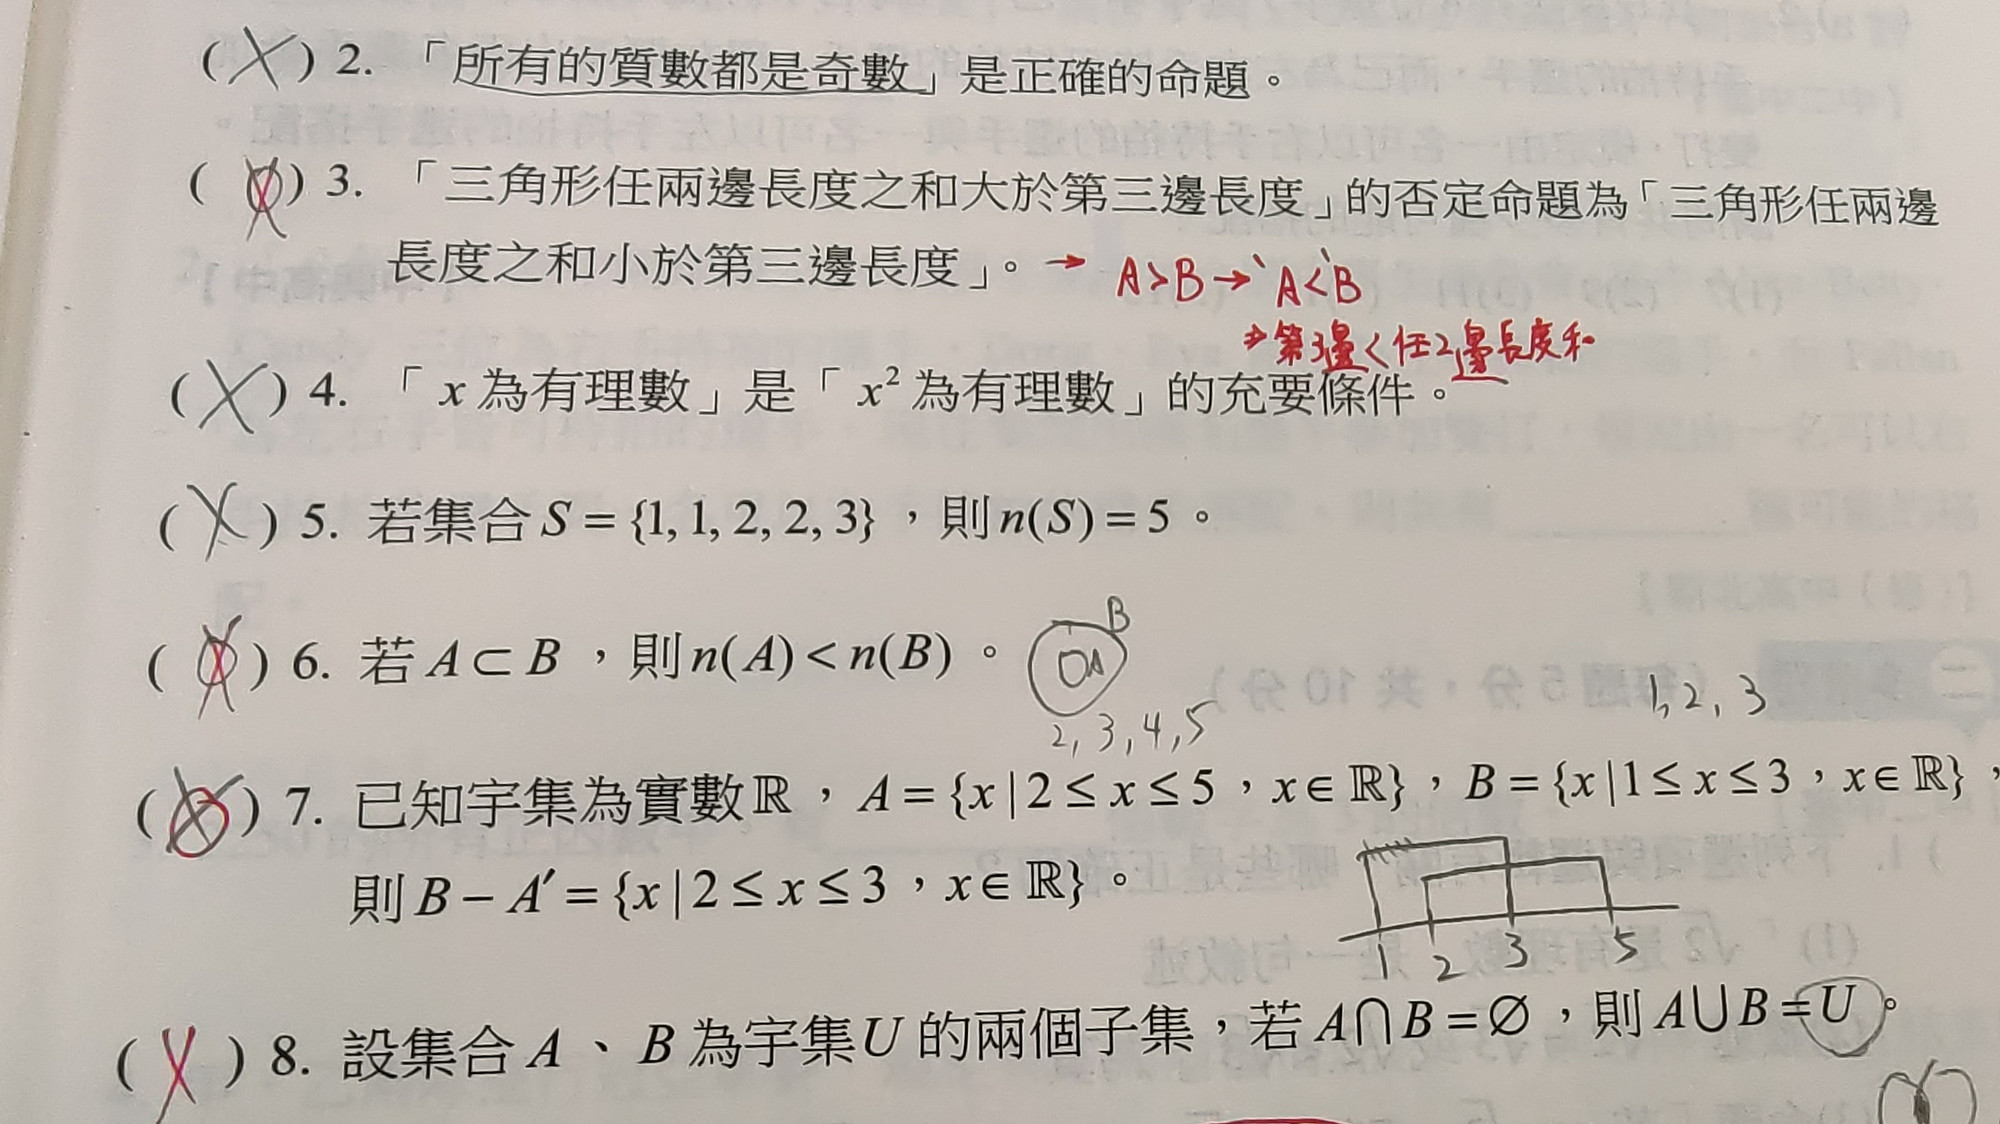 (X) 2. 「所有的質數都是奇數」是正確的命題。
(X) 3. 「三角形任兩邊長度之和大於第三邊長度」的否定命題為「三角形任兩邊
長度之和小於第三邊長度」。→ A>B→、A<、B
→第3邊<任2邊長度和
(X) 4. 「x 為有理數」是「x² 為有理數」的充要條件。
(X) 5. 若集合 S = {1, 1, 2, 2, 3},則 n(S) = 5。
(X) 6. 若 A ⊂ B,則 n(A) < n(B)。 A B
2, 3, 4, 5 1, 2, 3
(O) 7. 已知宇集為實數 ℝ,A = {x | 2 ≤ x ≤ 5,x ∈ ℝ},B = {x | 1 ≤ x ≤ 3,x ∈ ℝ},
則 B − A′ = {x | 2 ≤ x ≤ 3,x ∈ ℝ}。
1 2 3 5
(X) 8. 設集合 A、B 為宇集 U 的兩個子集,若 A ∩ B = ∅,則 A ∪ B = U。